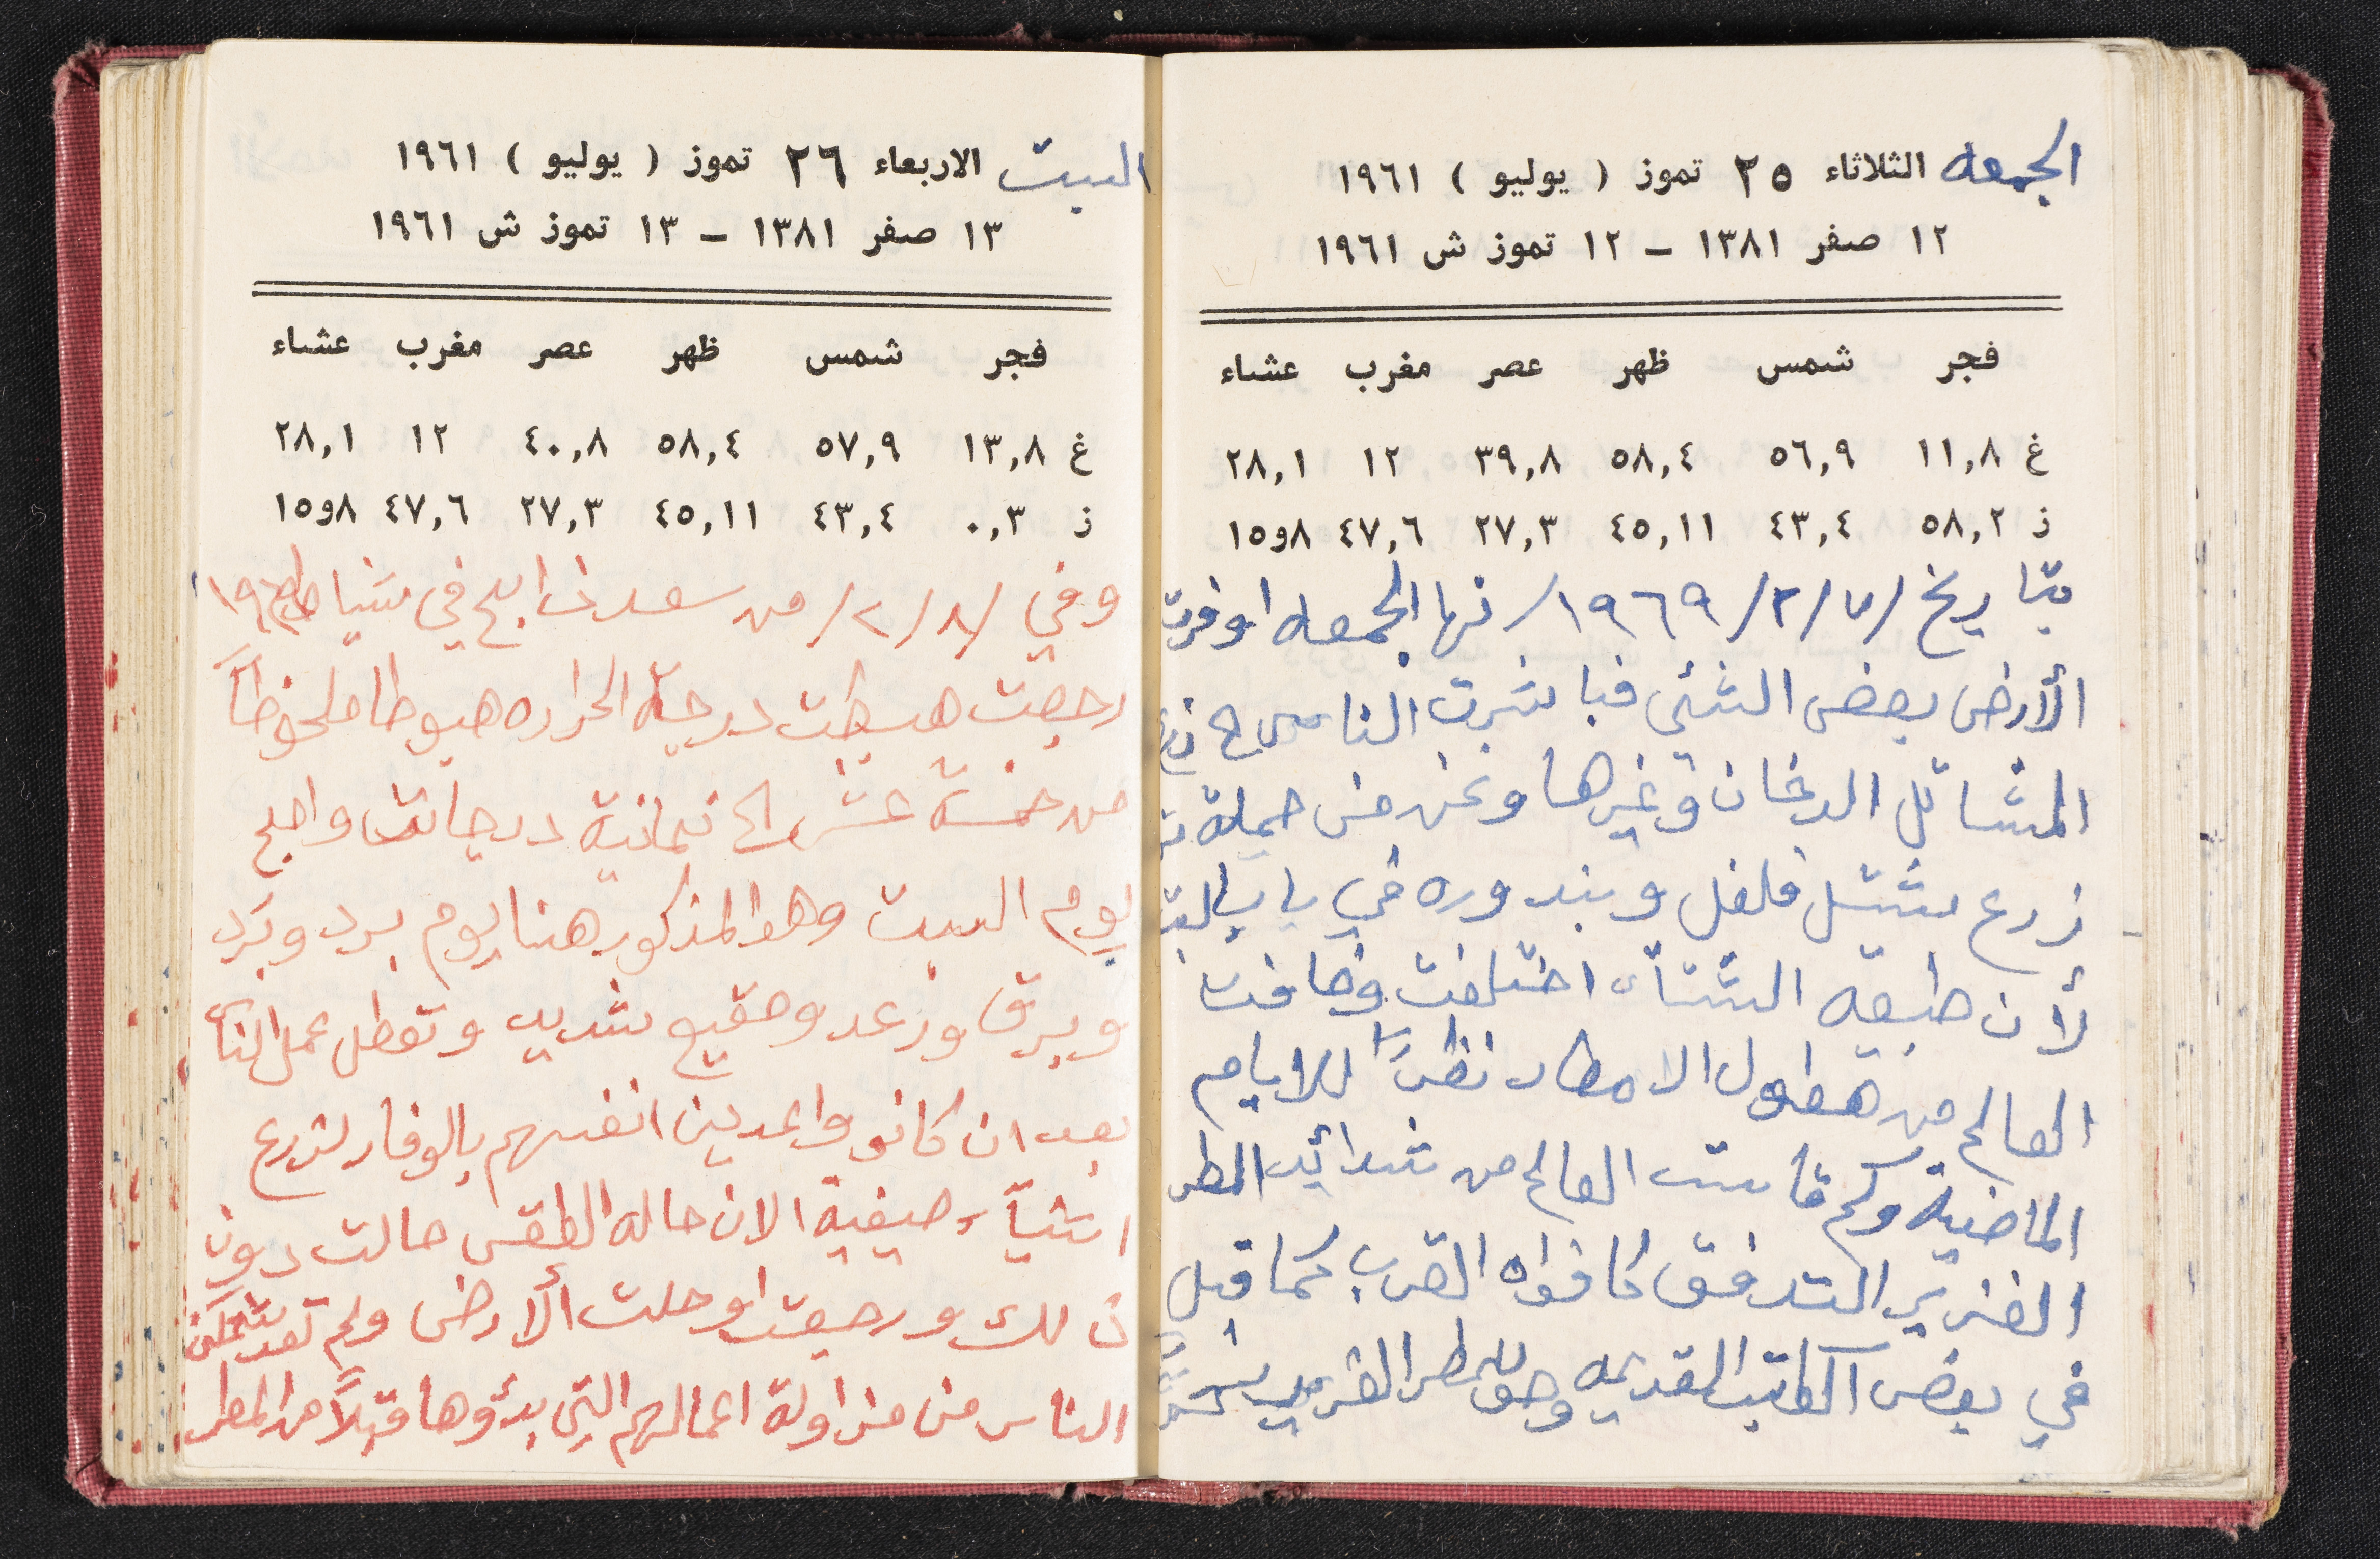 الجمعه الثلاثاء ٢٥ تموز ( يوليو ) ١٩٦١
١٢ صفر ١٣٨١ – ١٢ تموز ش ١٩٦١
فجر شمس ظهر عصر مغرب عشاء
غ ١١,٨ ٥٦,٩ ٥٨,٤ ٣٩,٨ ١٢ ٢٨,١
ز ٥٨,٢ ٤٣,٤ ٤٥,١١ ٢٧,٣ ٤٧,٦ ٨و١٥
بتاريخ /٧/٢/١٩٦٩/ نهار الجمعه اوفرت
الأرض بعض الشئ فباشرت الناس
المشاتل الدخان وغيرها ونحن من جملة
زرع مشتل فلفل وبندوره في باب
لأن طبيعة الشتآء اختلفت وخافت
العالم من هطول الامطار نظرآً للايام
الماضية وكم قاست العالم من شدائد المطر
الغزير المتدفق كافواه القرب كما قيل
في بعض الكاتب القديمه وهو المطر الغزير
السبت الاربعاء ٢٦ تموز ( يوليو ) ١٩٦١
١٣ صفر ١٣٨١ – ١٣ تموز ش ١٩٦١
فجر شمس ظهر عصر مغرب عشاء
غ ١٣,٨ ٥٧,٩ ٥٨,٤ ٤٠,٨ ١٢ ٢٨,١
ز ٠,٣ ٤٣,٤ ٤٥,١١ ٢٧,٣ ٤٧,٦ ٨و١٥
وفي /٨/٢/ من في شباط
رجعت هبطت درجة الحراره هبوطا ملحوظاً
من خمسة عشر الى ثمانية درجات واصبح
يوم السبت وهو المذكور هنا يوم برد وبَرَد
وبرق ورعد وصقيع شديد وتعطل عمل الناس
بعد ان كانو واعدين انفسهم بالوفار لزرع
اشيآء صيفية الان حالة الطقس حالت دون
ذلك ورجعت اوحلت الأرض ولم تعد تتمكن
الناس من مزاولة اعمالهم التي بدؤوها قبلاً من المطر